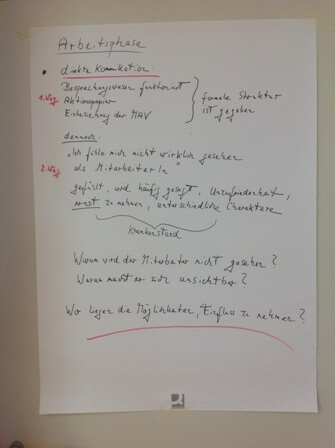 Arbeitsphase
• direkte Kommunikation:
Besprechungswesen funktioniert
1. Weg Aktionspapier
Einbeziehung der MAV
formale Struktur
ist gegeben
dennoch:
"Ich fühle mich nicht wirklich gesehen
2. Weg als MitarbeiterIn"
gefühlt, wird häufig gesagt, Unzufriedenheit,
ernst zu nehmen, unterschiedliche Charaktere
Krankenstand
Warum wird der Mitarbeiter nicht gesehen?
Warum macht er sich unsichtbar?
Wo liegen die Möglichkeiten, Einfluss zu nehmen?